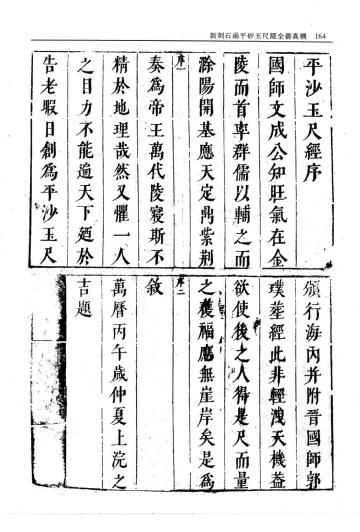 新刻石函平砂玉尺經全書真機 164
平沙玉尺經序
國師文成公知旺氣在金
陵而首率群儒以輔之而
滁陽開基應天定鼎紫荆
序一
奏為帝王萬代陵寢斯不
精於地理哉然又懼一人
之目力不能遍天下廼於
告老暇日創為平沙玉尺
頒行海內并附晉國師郭
璞葬經此非輕洩天機蓋
欲使後之人得是尺而量
之獲福應無崖岸矣是為
序二
敘
萬曆丙午歲仲夏上浣之
吉題